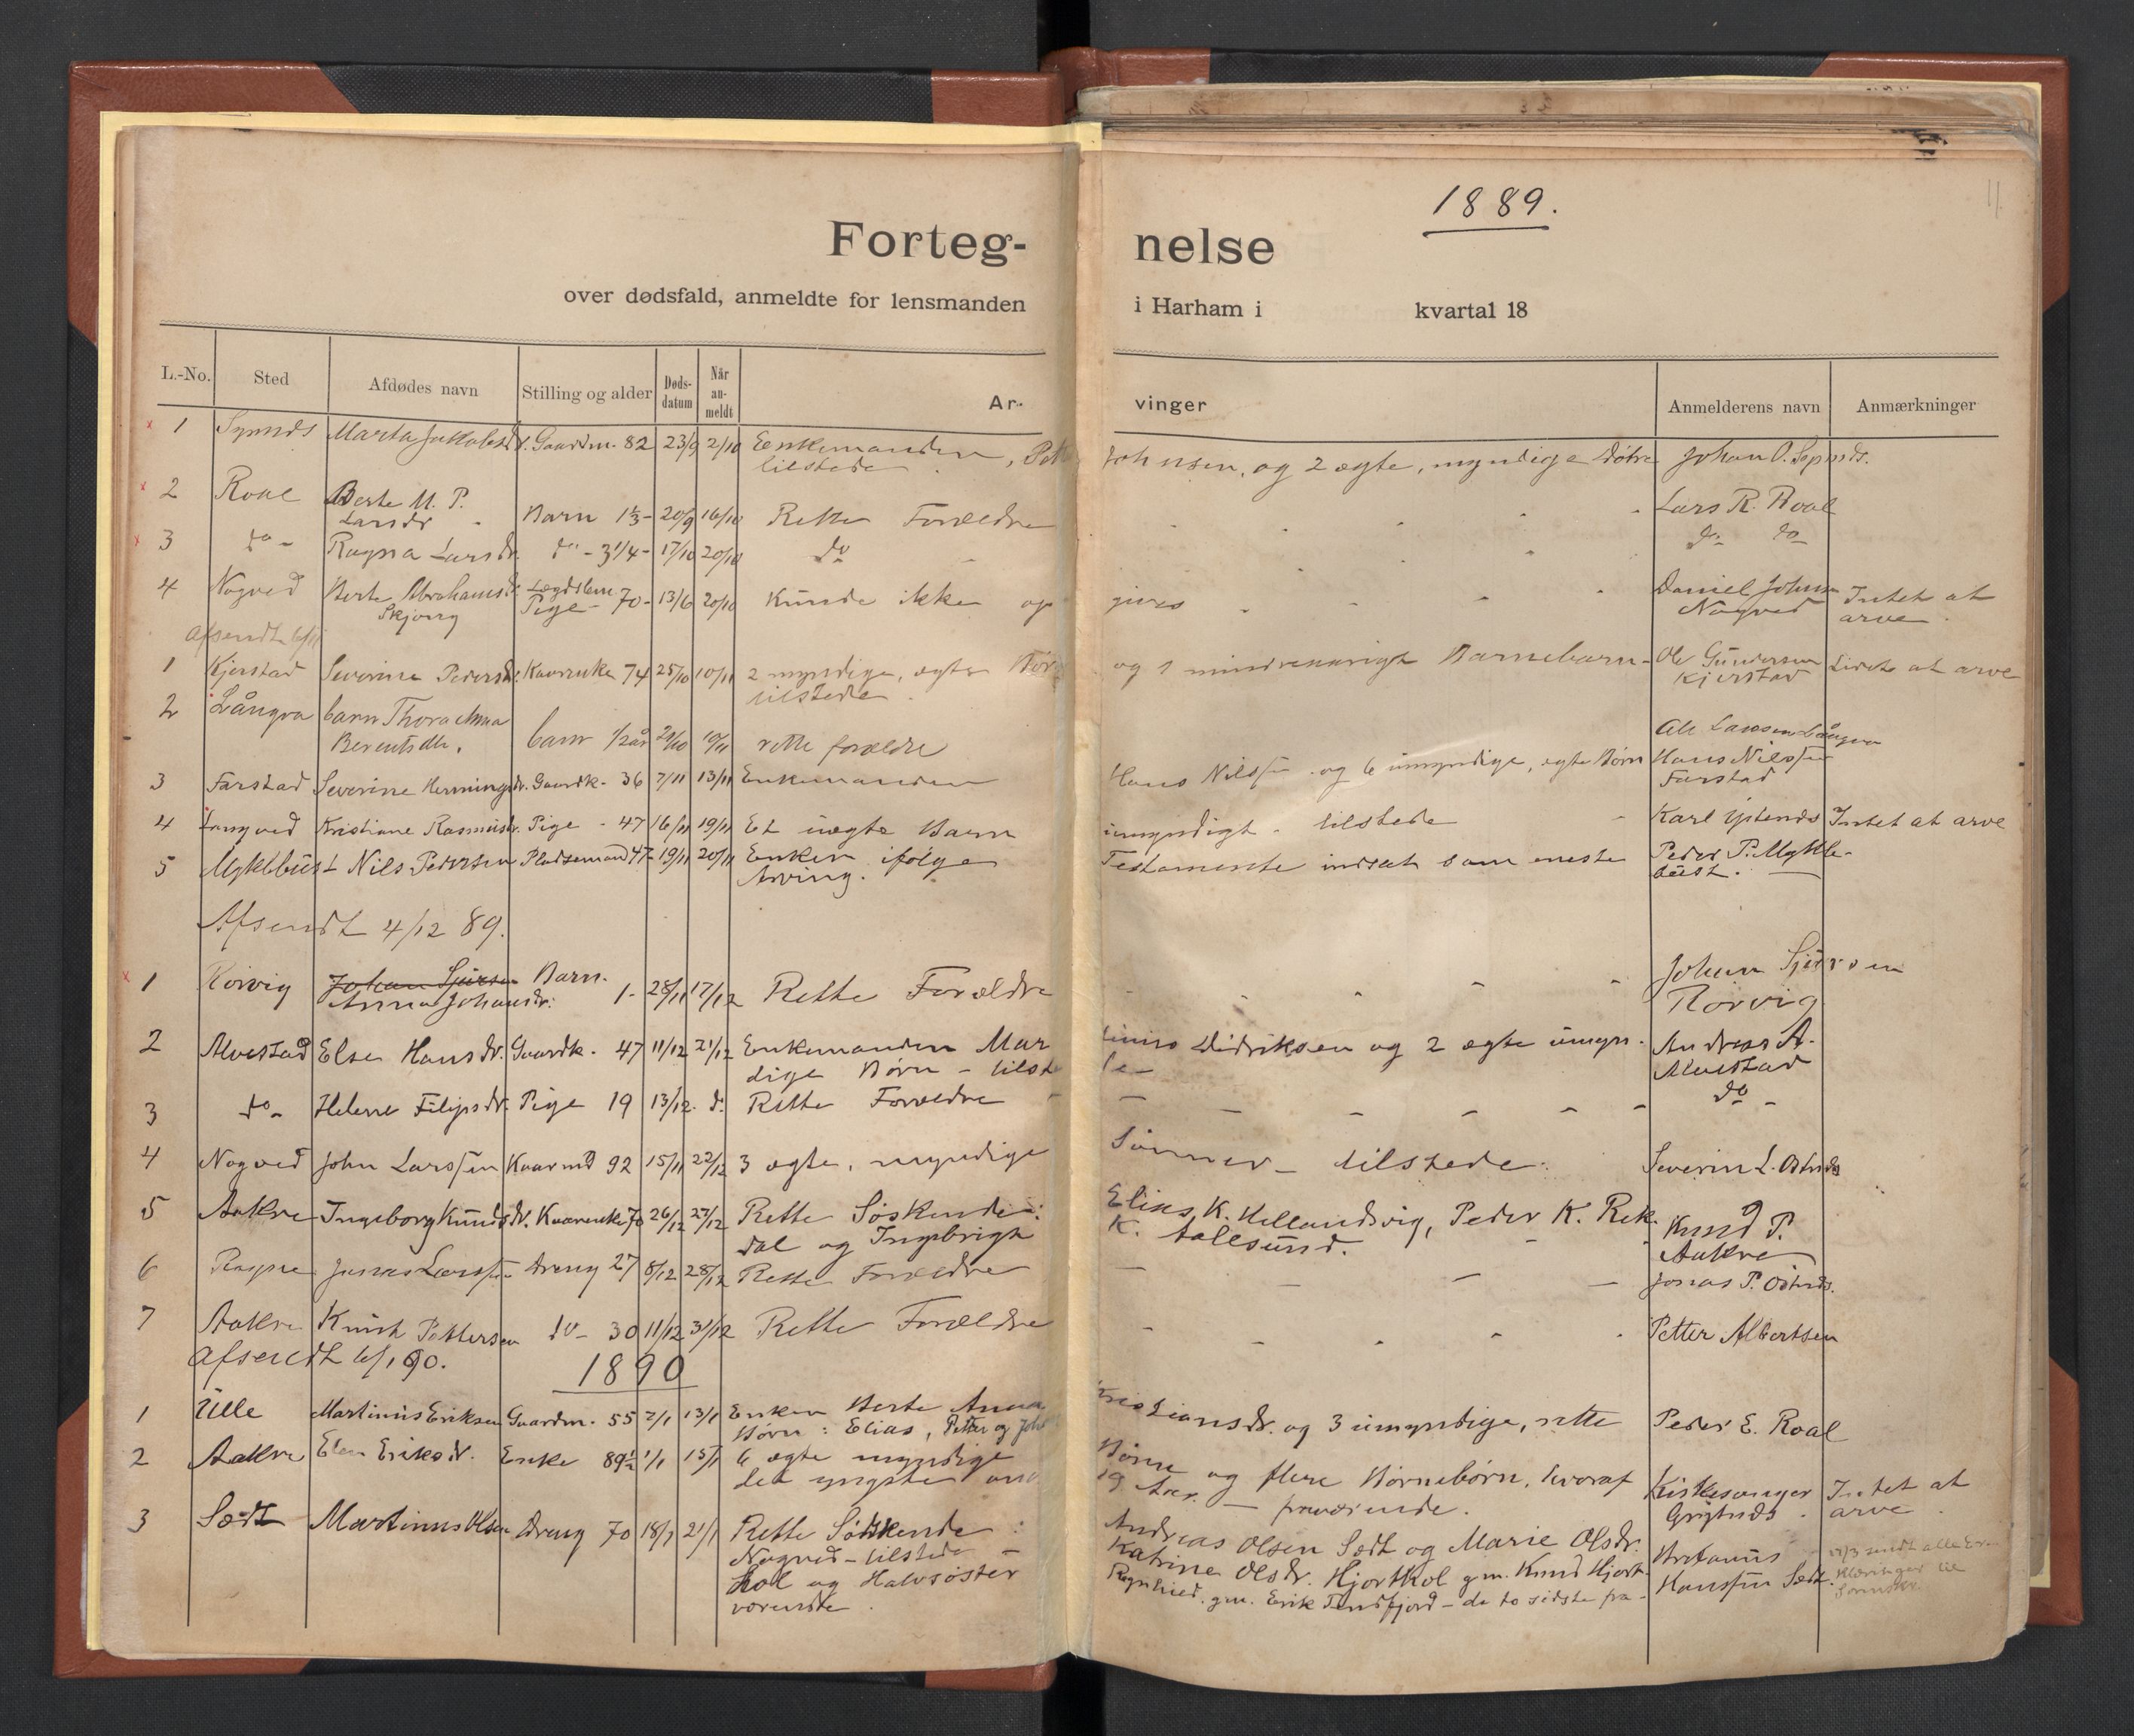 1889.
11
Forteg-
nelse
over dødsfald, anmeldte for lensmanden
i Harham i kvartal 18
L.-No. Sted Afdødes navn Stilling og alder Døds-datum Når an-meldt Ar- vinger Anmelderens navn Anmærkninger
1 Synnds Marta Jakobsdr. Gaardm. 82 23/9 2/10 Enkemanden, Johnsen, og 2 ægte, myndige Døtre Johan O. Synnds.
tilstede
2 Roal Berte M. P.
Larsdr Barn 1 1/3 - 20/9 16/10 Rette Forældre - - - - - Lars R. Roal
3 do - Ragna Larsdr do - 3 1/4 - 17/10 20/10 do - - do do
4 Nogved Berte Abrahamsdr Lægdslem. Daniel Johnsen
Skjong Pige - 70 - 13/6 20/10 Kunde ikke op gives - - - - Nogved Intet at
arve.
Afsendt 6/11
1 Kjerstad Severine Pedersdr. Kaarenke 74 25/10 10/11 2 myndige, ægte Børn og 1 mindreaarigt Barnebarn - Ole Gundersen Lidet at arve
tilstede Kjerstad
2 Långva barn Thora Anna
Berentsdtr. barn 1/2 år 29/10 10/11 rette forældre Ole Larsen Långva
3 Farstad Severine Henningsdr. Gaardk. 36 7/11 13/11 Enkemanden Hans Nilssen og 6 umyndige, ægte Børn Hans Nilssen
Farstad
4 Longved Kristiane Rasmusdr. Pige - 47 16/11 19/11 Et uægte Barn umyndigt - tilstede - Karl Ystends Intet at arve
5 Myklbust Nils Pedersen Pladsemand 47 - 19/11 20/11 Enken ifølge Testamente indsat som eneste Peder P. Mykle-
Arving. bust.
Afsendt 4/12 89.
1 Rørvig Johan Sjursen Barn. Johan Sjursen
Anna Johansdr. 1 - 28/11 17/12 Rette Forældre - - - - - Rørvig
2 Alvestad Else Hansdr. Gaardk. 47 11/12 21/12 Enkemanden Mar tinus Didriksen og 2 ægte umyn- Andreas A.
dige Børn - tilste de - Alvestad
3 do - Helene Filipsdr. Pige 19 13/12 do Rette Forældre - - - - - - do -
4 Nogved John Larssen Kaarmd 92 15/11 22/12 3 ægte, myndige Sønner - tilstede. Severin L. Østnds
5 Aakre Ingeborg Knudsdr. Kaarenke 70 26/12 27/12 Rette Søskende: Elias K. Hellandsvig, Peder K. Rek- Knud P.
dal og Ingebrigt K. Aalesund. - - Aakre
6 Rogne Jonas Larssen Dreng 27 8/12 28/12 Rette Forældre - - - - Jonas P. Østnds.
7 Aakre Knut Pettersen do - 30 11/12 31/12 Rette Forældre - - - - - Petter Albertsen
Afsendt 6/1 90.
1890
1 Ulle Martinus Eriksen Gaardm. 55 2/1 13/1 Enken Berte Anna Kristiansdr. og 3 umyndige, rette Peder E. Roal
Børn: Elias, Petter og
2 Aakre Elen Eriksdr. Enke 89 1/2 1/1 15/1 6 ægte myndige Børn og flere Børnebørn, hvoraf Kirkesanger Intet at
det yngste 19 Aar. - fraværende. Grytnds. arve.
3 Sædt Martinus Olsen Dreng 70 18/1 21/1 Rette Søskende: Andreas Olsen Sædt og Marie Olsdr. Brefanus
Nogved - tilstede - Katrine Olsdr. Hjortkol g.m. Knud Hjort- Hanssen Sædt.
kol og Halvsøster Ragnhild. g.m. Erik Tendfjord - de to sidste fra-
værende.
sendt alle Er-
klæringer til